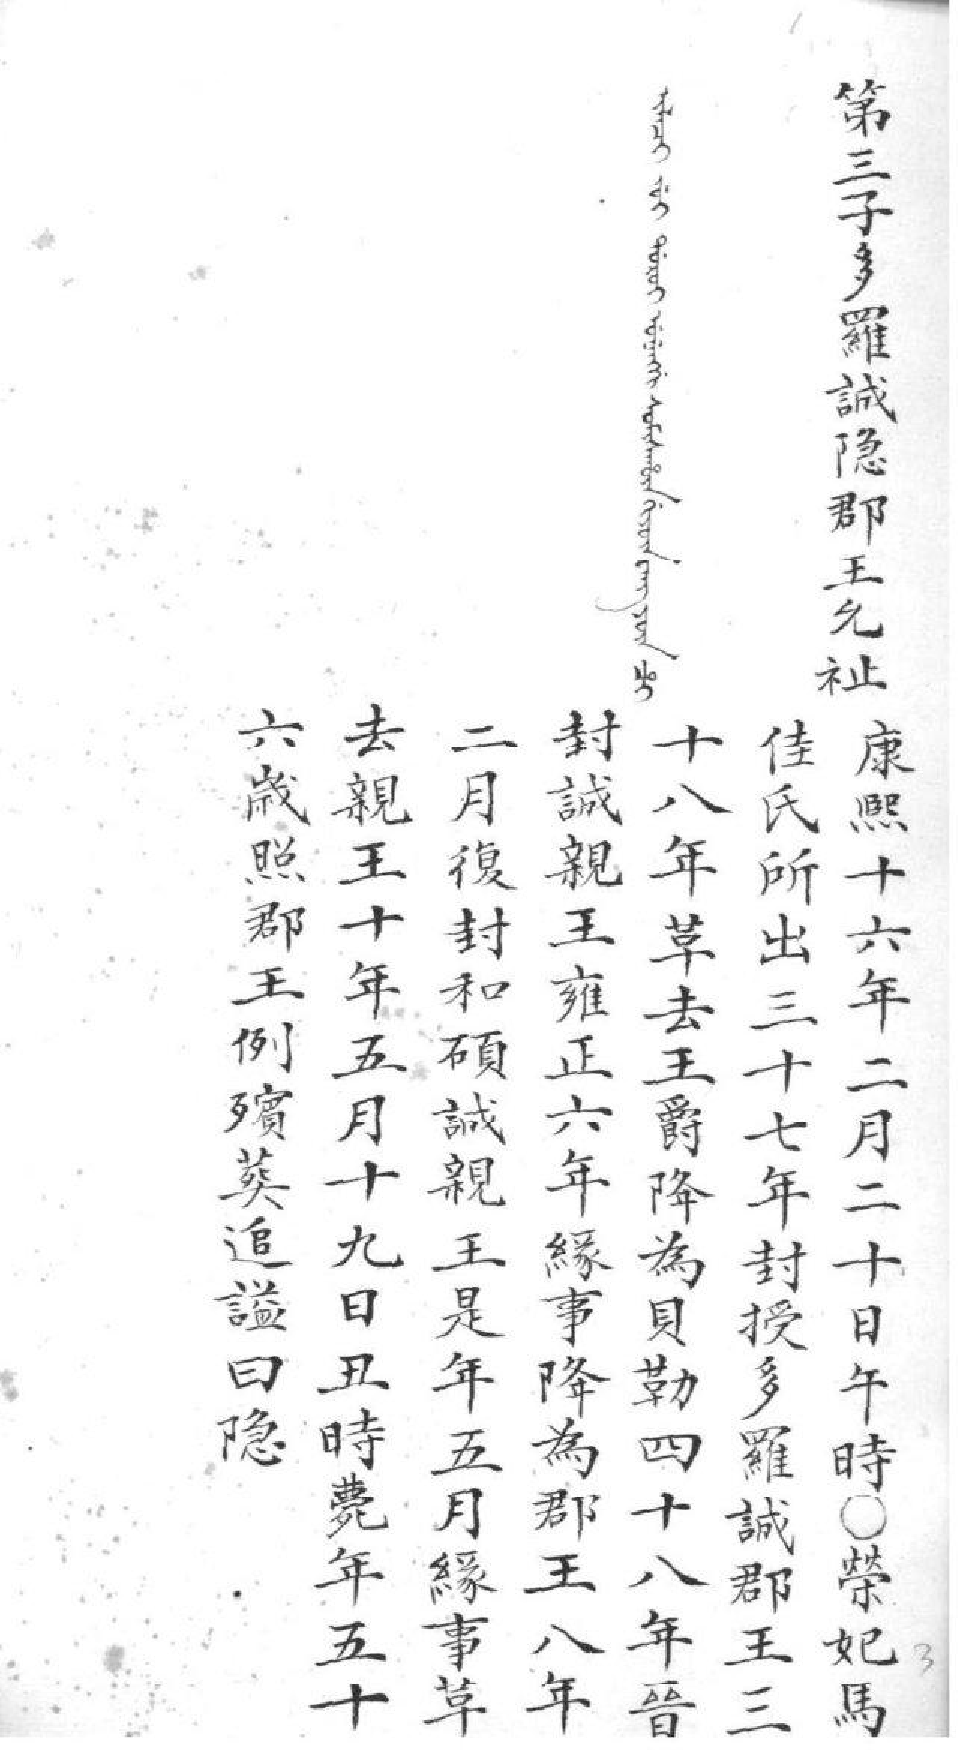 第三子多羅誠隐郡王允祉
康熙十六年二月二十日午時○榮妃馬
佳氏所出三十七年封授多羅誠郡王三
十八年革去王爵降為貝勒四十八年晉
封誠親王雍正六年緣事降為郡王八年
二月復封和碩誠親王是年五月緣事革
去親王十年五月十九日丑時薨年五十
六歲照郡王例殯葬追謚曰隐
3